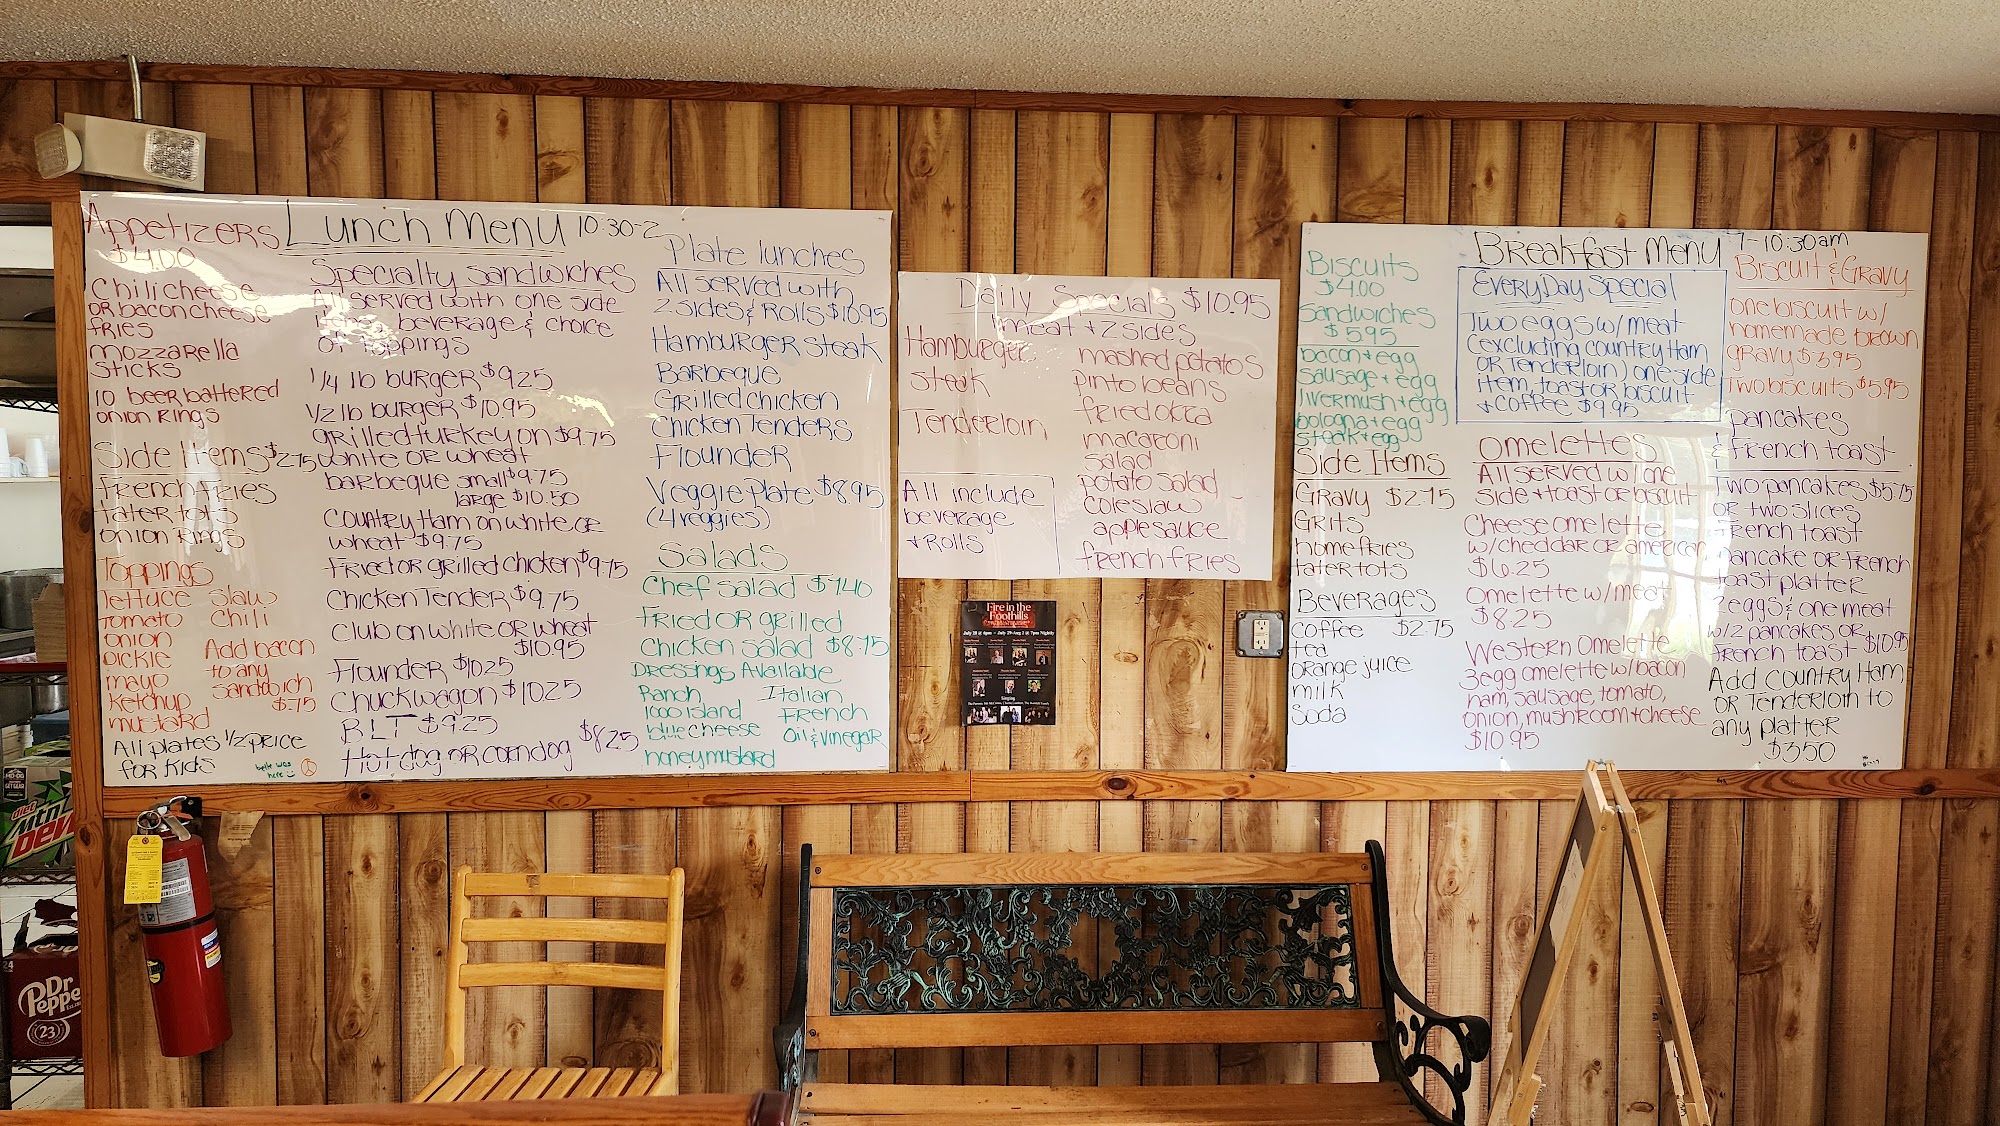 Lunch Menu 10:30-2
Appetizers
$4.00
Chili cheese
or bacon cheese
fries
mozzarella
sticks
10 beer battered
onion rings
Side Items $2.75
french fries
tater tots
onion rings
Toppings
lettuce
tomato
onion
pickle
mayo
ketchup
mustard
slaw
chili
Add bacon
to any
sandwich
$.75
All plates 1/2 price
for kids
belle was
here
Specialty Sandwiches
All served with one side
beverage & choice
of toppings
1/4 lb burger $9.25
1/2 lb burger $10.95
grilled turkey on $9.75
white or wheat
barbeque small $9.75
large $10.50
Country Ham on white or
wheat $9.75
Fried or grilled chicken $9.75
Chicken Tender $9.75
Club on white or wheat
$10.95
Flounder $10.25
Chuckwagon $10.25
BLT $9.25
Hot dog or corndog $8.25
Plate lunches
All served with
2 sides & rolls $10.95
Hamburger steak
Barbeque
Grilled chicken
Chicken Tenders
Flounder
Veggie Plate $8.95
(4 veggies)
Salads
Chef salad $7.40
Fried or grilled
Chicken salad $8.75
Dressings Available
Ranch
1000 island
blue cheese
honey mustard
Italian
French
Oil & vinegar
Daily Specials $10.95
meat + 2 sides
Hamburger
steak
Tenderloin
All include
beverage
+ rolls
mashed potatoes
pinto beans
fried okra
macaroni
salad
potato salad
coleslaw
applesauce
french fries
Fire in the
Foothills
Breakfast Menu 7-10:30am
Biscuits
$4.00
Sandwiches
$5.95
bacon + egg
sausage + egg
livermush + egg
bologna + egg
steak + egg
Side Items
Gravy $2.75
Grits
home fries
tater tots
Beverages
coffee $2.75
tea
orange juice
milk
soda
Every Day Special
Two eggs w/ meat
(excluding country ham
or Tenderloin) one side
item, toast or biscuit
+ coffee $9.95
Omelettes
All served w/ one
side + toast or biscuit
Cheese omelette
w/ cheddar or american
$6.25
omelette w/ meat
$8.25
Western Omelette
3 egg omelette w/ bacon
ham, sausage, tomato,
onion, mushroom + cheese
$10.95
Biscuit & Gravy
one biscuit w/
homemade brown
gravy $3.95
Two biscuits $5.95
pancakes
& French toast
Two pancakes $5.75
or two slices
French toast
pancake or French
toast platter
2 eggs & one meat
w/ 2 pancakes or $10.95
french toast
Add country Ham
or Tenderloin to
any platter
$3.50
diet
Mtn
Dew
24
Dr
Pepper
23